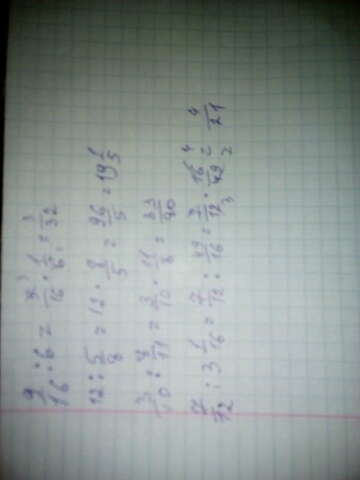 9/16 : 6 = 9/16 · 1/6 = 3/32
12 : 5/8 = 12 · 8/5 = 96/5 = 19 1/5
3/10 : 8/11 = 3/10 · 11/8 = 33/80
7/12 : 3 1/16 = 7/12 : 49/16 = 7/12 · 16/49 = 4/21